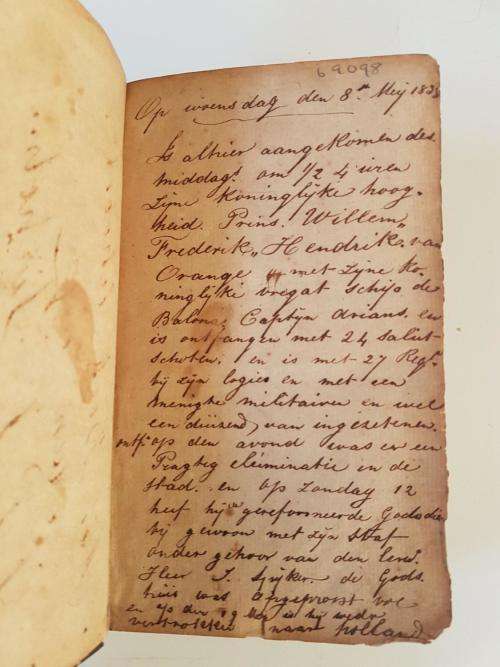 69098
Op woensdag den 8ste Meij 1835
Is alhier aangekomen des
middags om 1/2 4 uren
Zijne Koninglijke hoog-
heid. Prins. Willem,,
Frederik,, Hendrik. van
Orange met zijne Ko-
ninglijke vregat schip de
Balona, Captijn arians. en
is ontfangen met 24 salut-
schoten. en is met 27
bij zijn logies en met een
menighe militairen en wel
een duizend, van ingezetenen.
ontf: op den avond was er een
Pragtig eleiminatie in de
stad. en op zondag 12
heef hij gereformeerde Gods die
bij gewoon met zijn staf
onder gehoor van den Eerw.
Heer J. Spijker. de Gods.
huis was opgepropt vol
en op den 29 Meij is hij weder
vertrokken naar holland